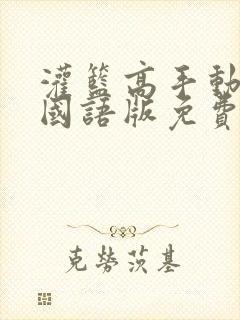 灌籃高手動
國語版免費
克勞茨基